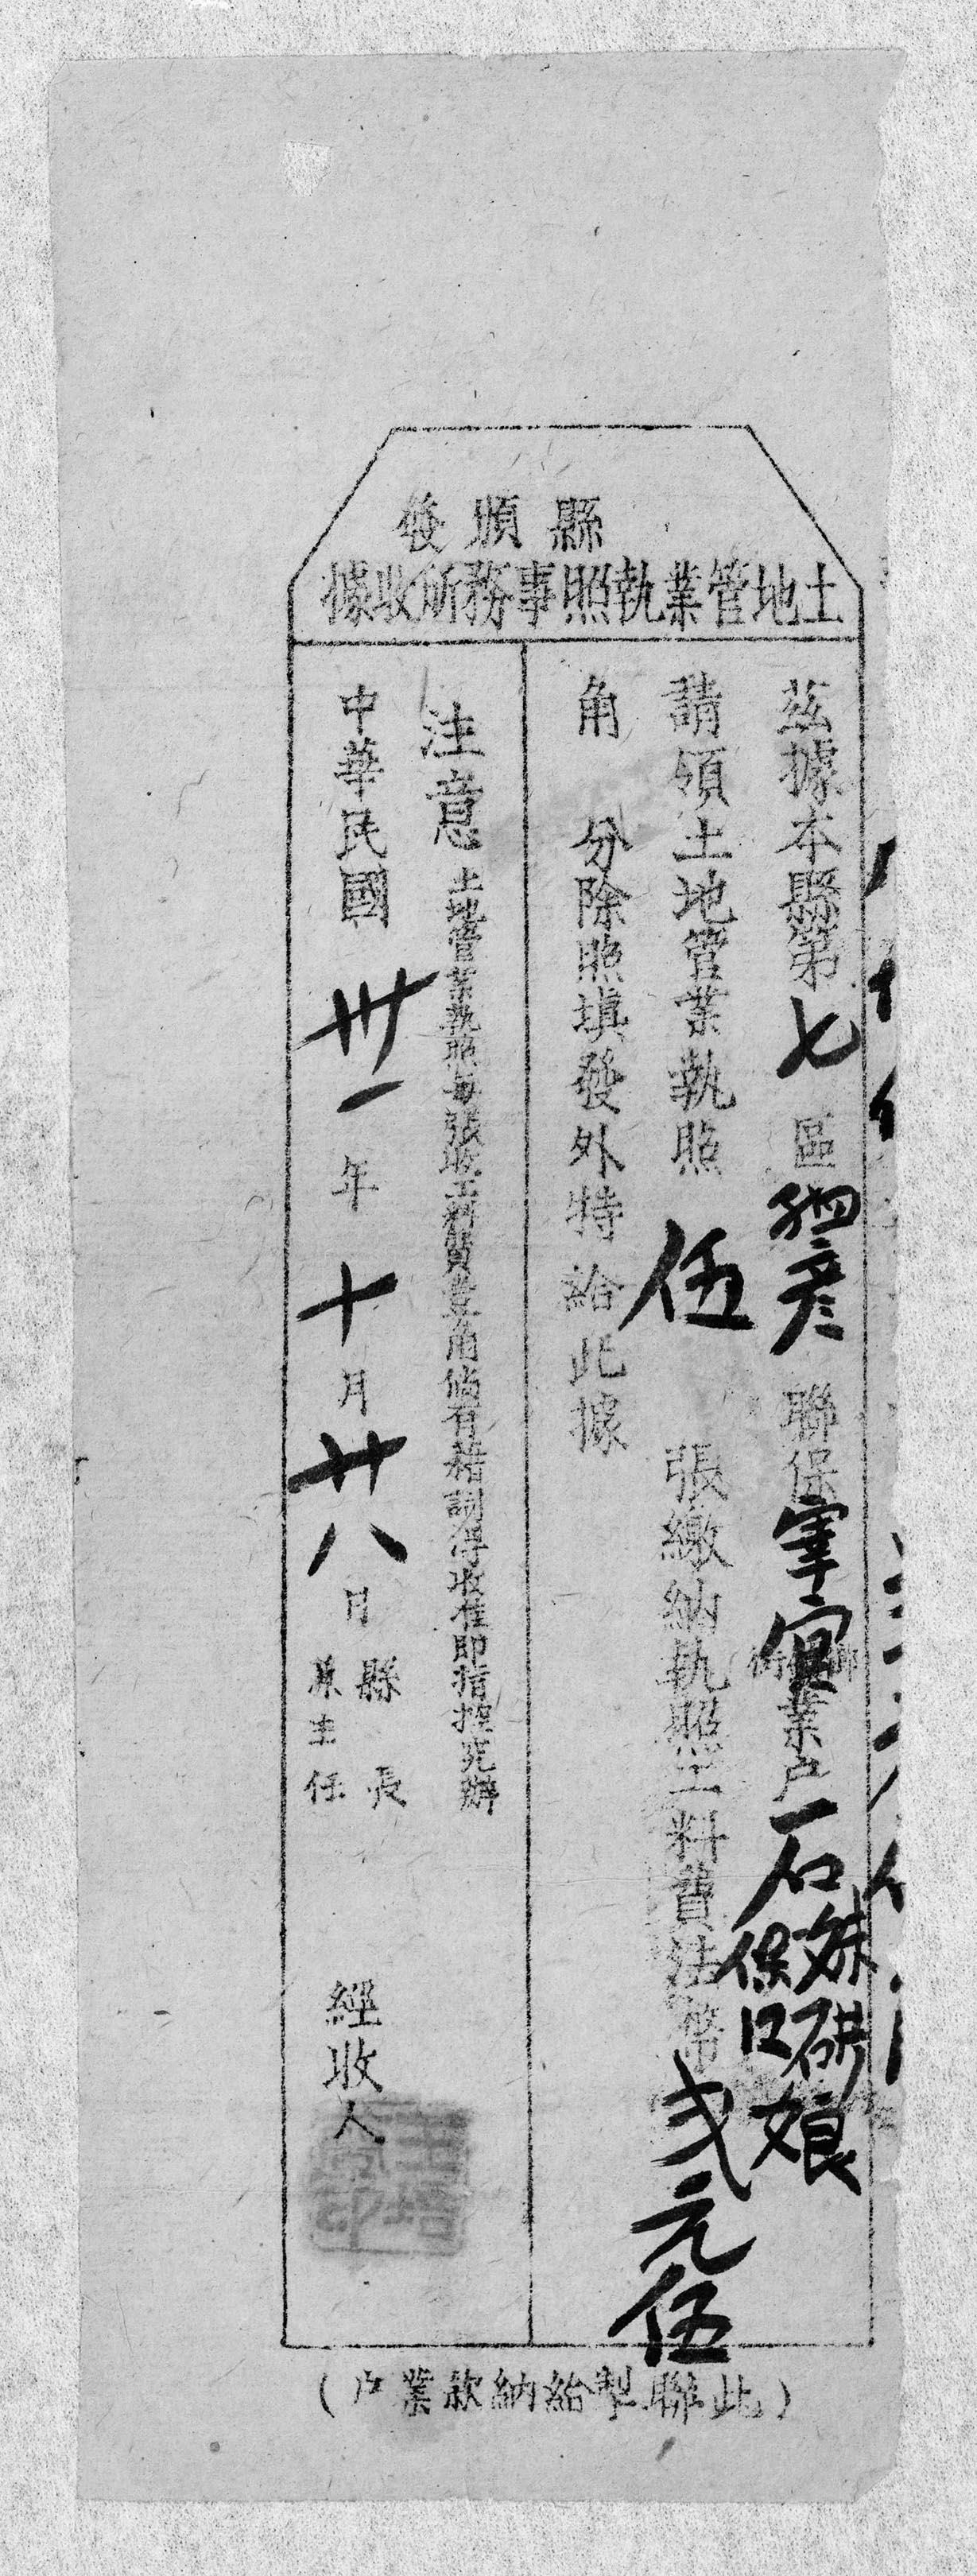 縣順後
土地管業執照事務所收據
茲據本縣第七區 聯保 業户石妹研娘保口
請領土地管業執照 伍 張繳納執照工料費法幣弍元伍
角 分除照填發外特給此據
注意 土地管業執照每張收工料費壹角倘有藉詞浮收准即指控究辦
中華民國卅一年十月廿八日 縣長
兼主任
經收人
（此聯掣給納款業户）